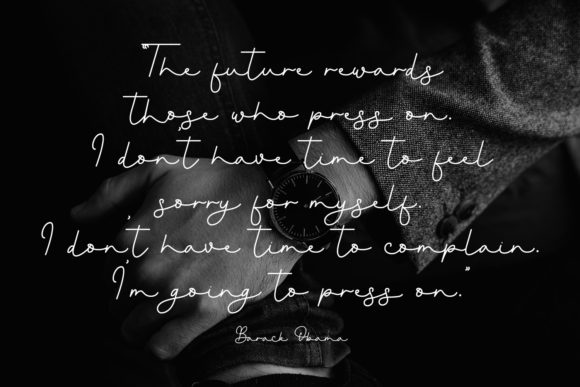 "The future rewards
those who press on.
I don't have time to feel
sorry for myself.
I don't have time to complain.
I'm going to press on."
Barack Obama